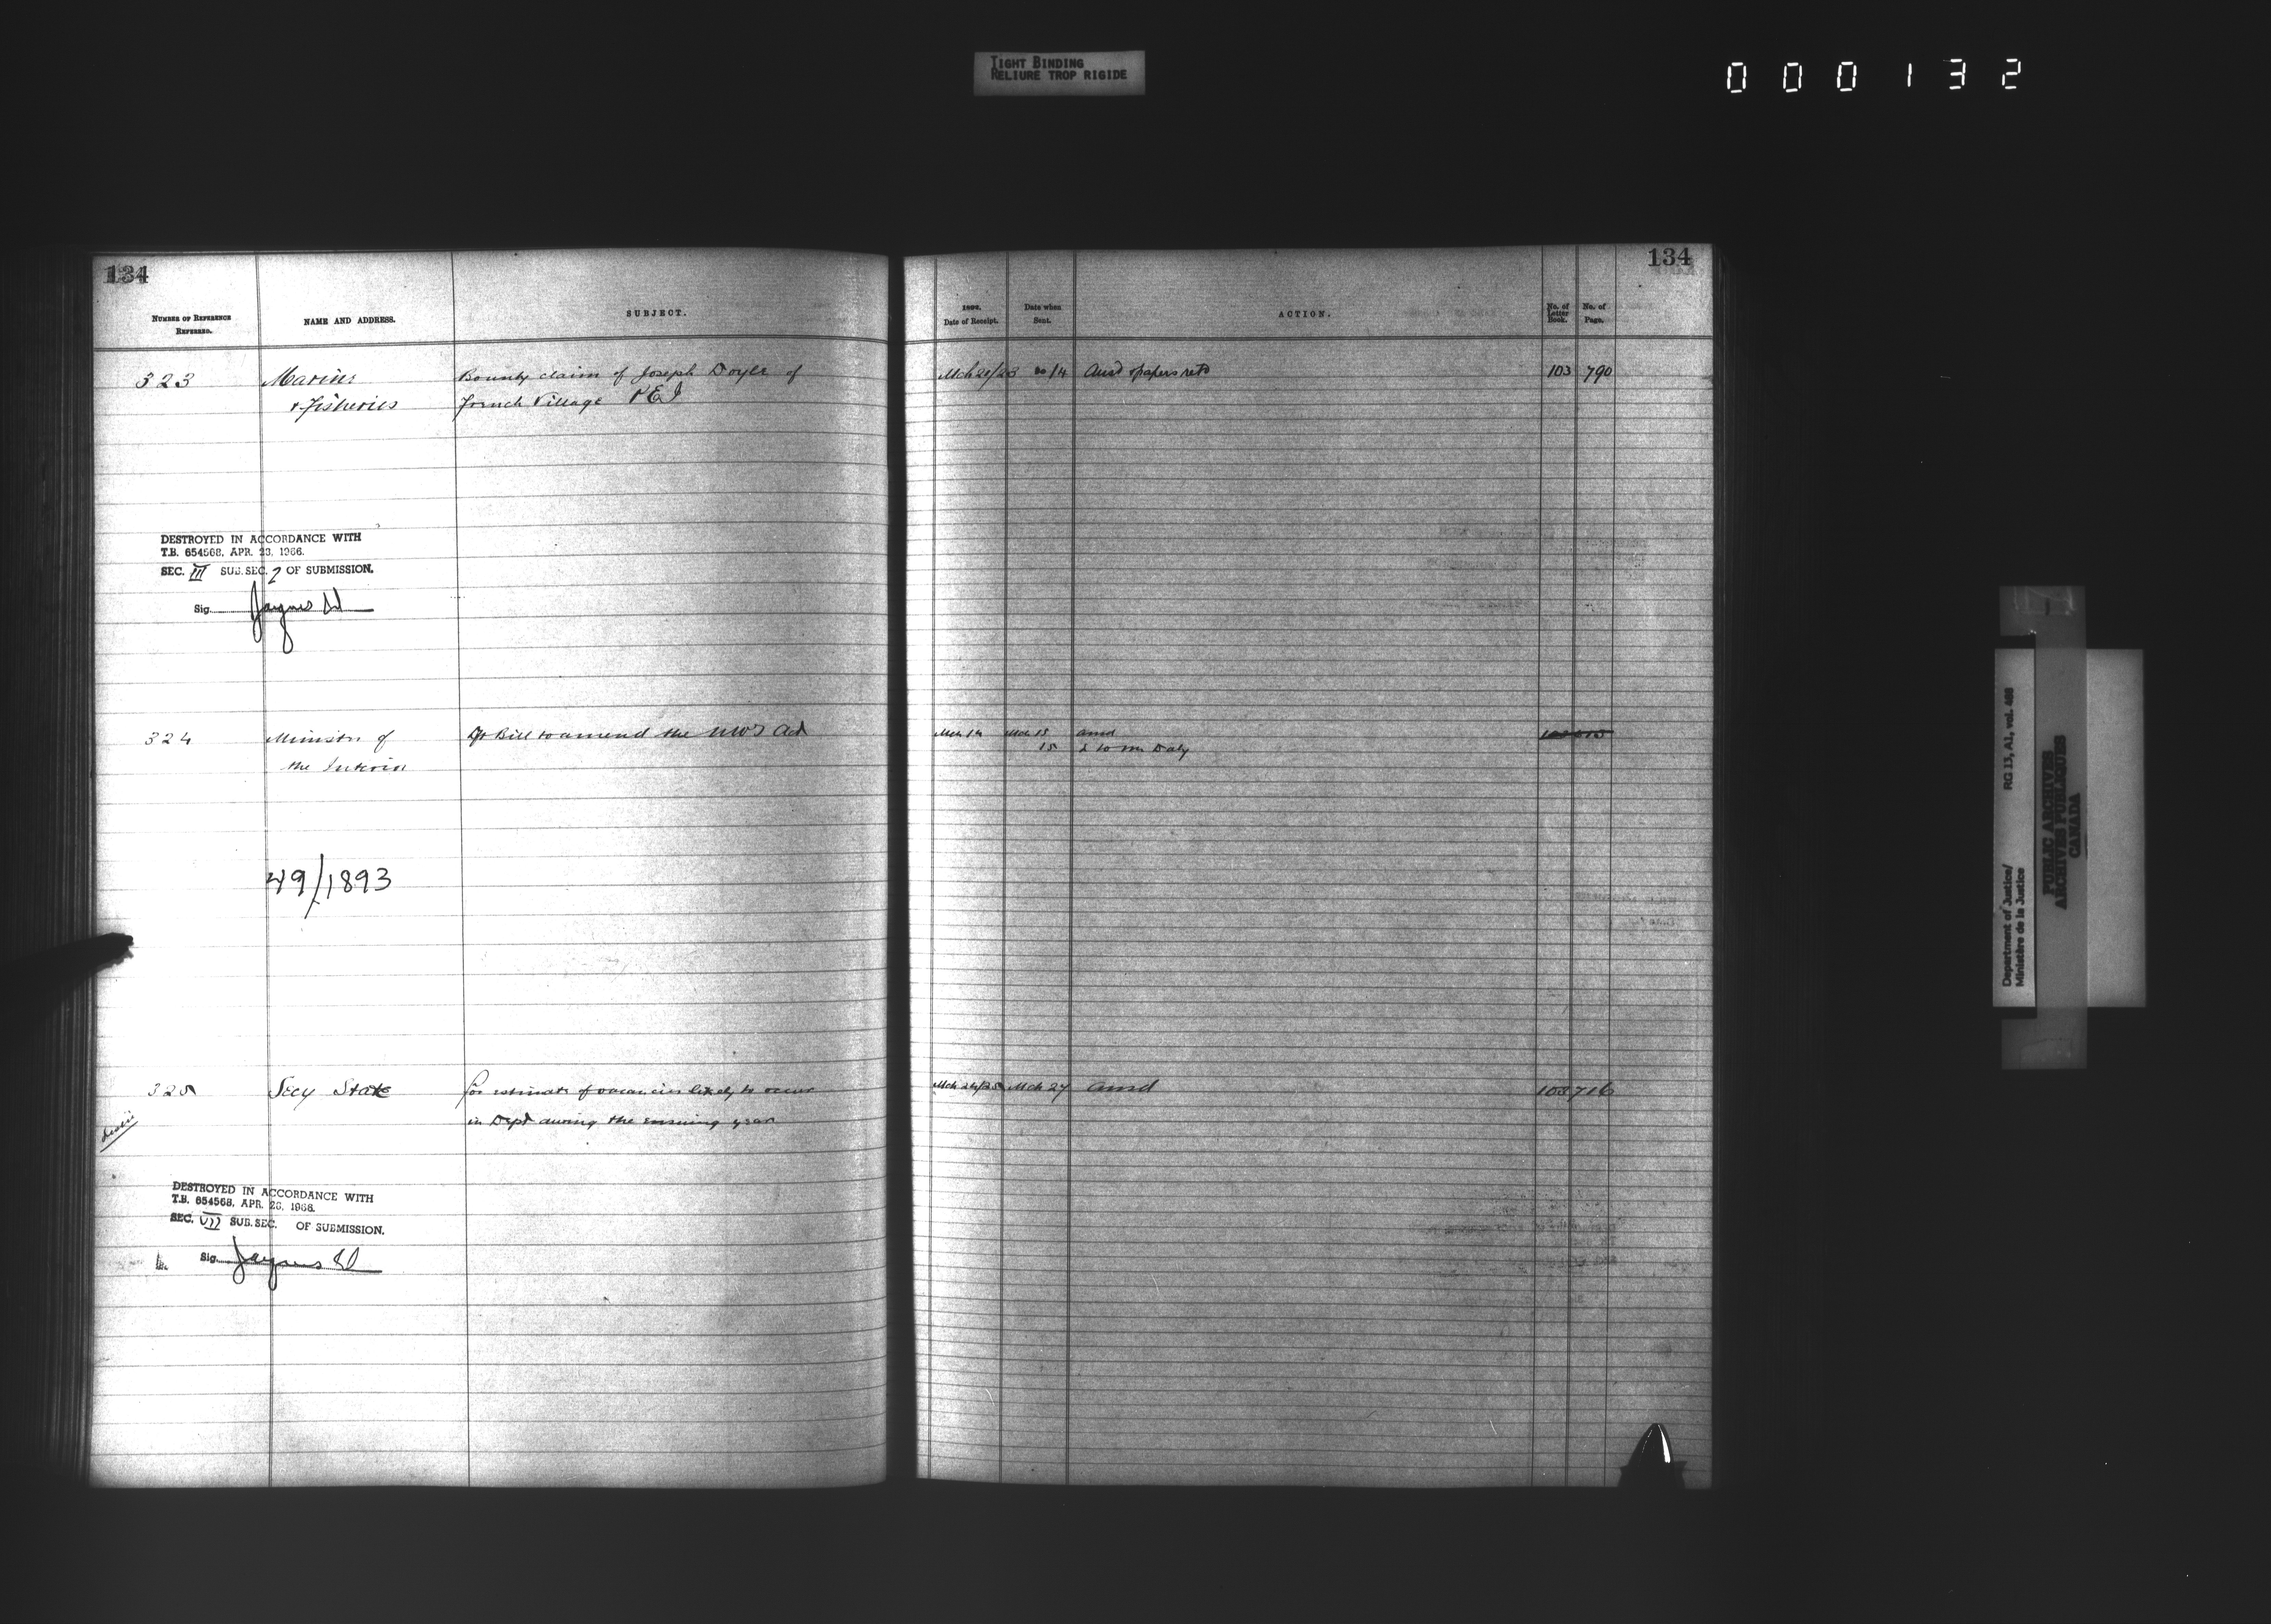 TIGHT BINDING
RELIURE TROP RIGIDE
000132
134
NUMBER OF REFERENCE REFERRED.
NAME AND ADDRESS.
SUBJECT.
323
Marine
& Fisheries
Bounty claim of Joseph Doyle of
French Village PEI
DESTROYED IN ACCORDANCE WITH
T.B. 654568, APR. 23, 1966.
SEC. III SUB. SEC. 2 OF SUBMISSION.
Sig.
324
Minister of
the Interior
Dft Bill to amend the NWT Act
49/1893
325
Secy State
For estimate of vacancies likely to occur
in Dept during the ensuing year
DESTROYED IN ACCORDANCE WITH
T.B. 654568, APR. 23, 1966.
SEC. VII SUB. SEC. OF SUBMISSION.
Sig.
134
Date of Receipt.
Date when Sent.
ACTION.
No. of Letter Book.
No. of Page.
Mch 20/23
Ansd & papers retd
103 790
Mch 14 Mch 15 ansd
15 & to Mr Daly
Mch 24/25 Mch 27 ansd
103 716
Department of Justice/ RG 13, A1, vol. 488
Ministère de la Justice
PUBLIC ARCHIVES
ARCHIVES PUBLIQUES
CANADA